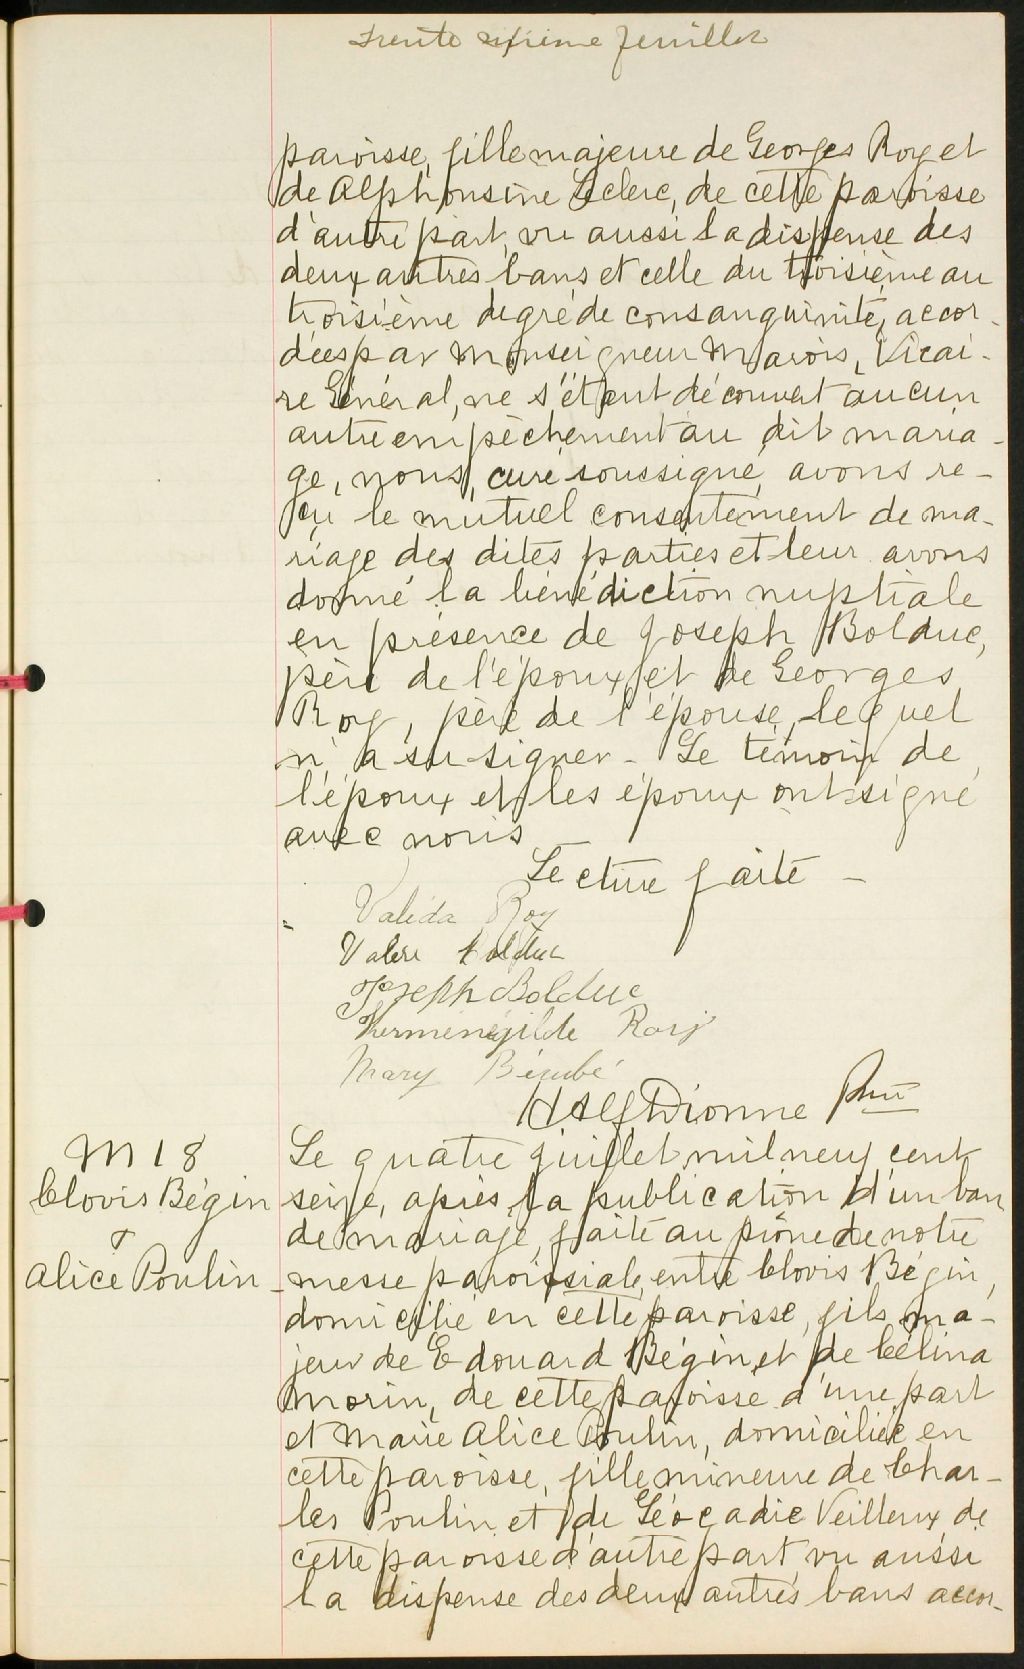 trente sixième feuillet
paroisse, fille majeure de Georges Roy et
de Alphonsine Leclerc, de cette paroisse
d'autre part, vu aussi la dispense des
deux autres bans et celle du troisième au
troisième degré de consanguinité, accor-
dées par Monseigneur Marois, Vicai-
re Général, ne s'étant découvert aucun
autre empêchement au dit maria-
ge, nous, curé soussigné, avons re-
çu le mutuel consentement de ma-
riage des dites parties et leur avons
donné la bénédiction nuptiale
en présence de Joseph Bolduc,
père de l'époux, et de Georges
Roy, père de l'épouse, lequel
n'a su signer - Le témoin de
l'époux et les époux ont signé
avec nous
Lecture faite -
Valéda Roy
Valère Bolduc
Joseph Bolduc
Herménégilde Roy
Mary Bérubé
H Alf Dionne Ptre
M 18
Clovis Bégin
&
Alice Poulin -
Le quatre juillet mil neuf cent
seize, après la publication d'un ban
de mariage, faite au prône de notre
messe paroissiale, entre Clovis Bégin,
domicilié en cette paroisse, fils ma-
jeur de Edouard Bégin, et de Célina
Morin, de cette paroisse d'une part
et Marie Alice Poulin, domiciliée en
cette paroisse, fille mineure de Char-
les Poulin et de Léocadie Veilleux de
cette paroisse d'autre part, vu aussi
la dispense des deux autres bans accor-